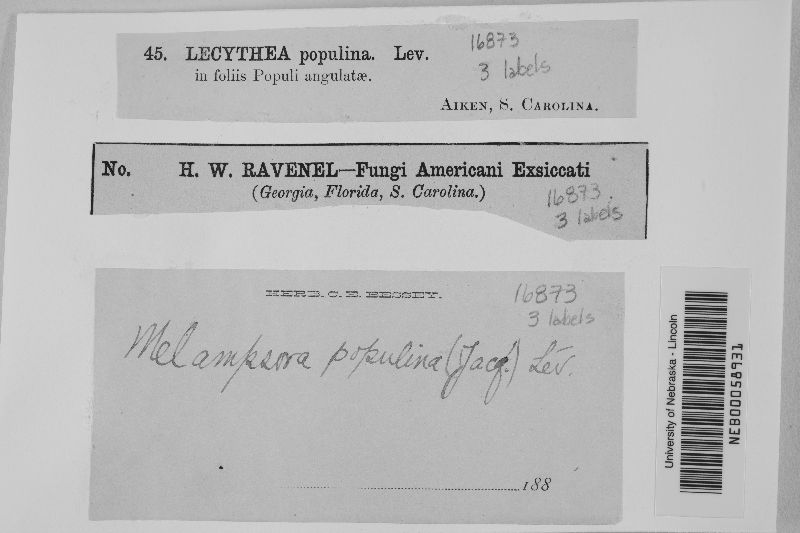 45. LECYTHEA populina. Lev.
in foliis Populi angulatæ.
AIKEN, S. CAROLINA.
16873
3 labels
No. H. W. RAVENEL—Fungi Americani Exsiccati
(Georgia, Florida, S. Carolina.)
16873.
3 labels
HERB. C. E. BESSEY.
16873
3 labels
Melampsora populina (Jacq.) Lév.
188
University of Nebraska - Lincoln
NEB00058931